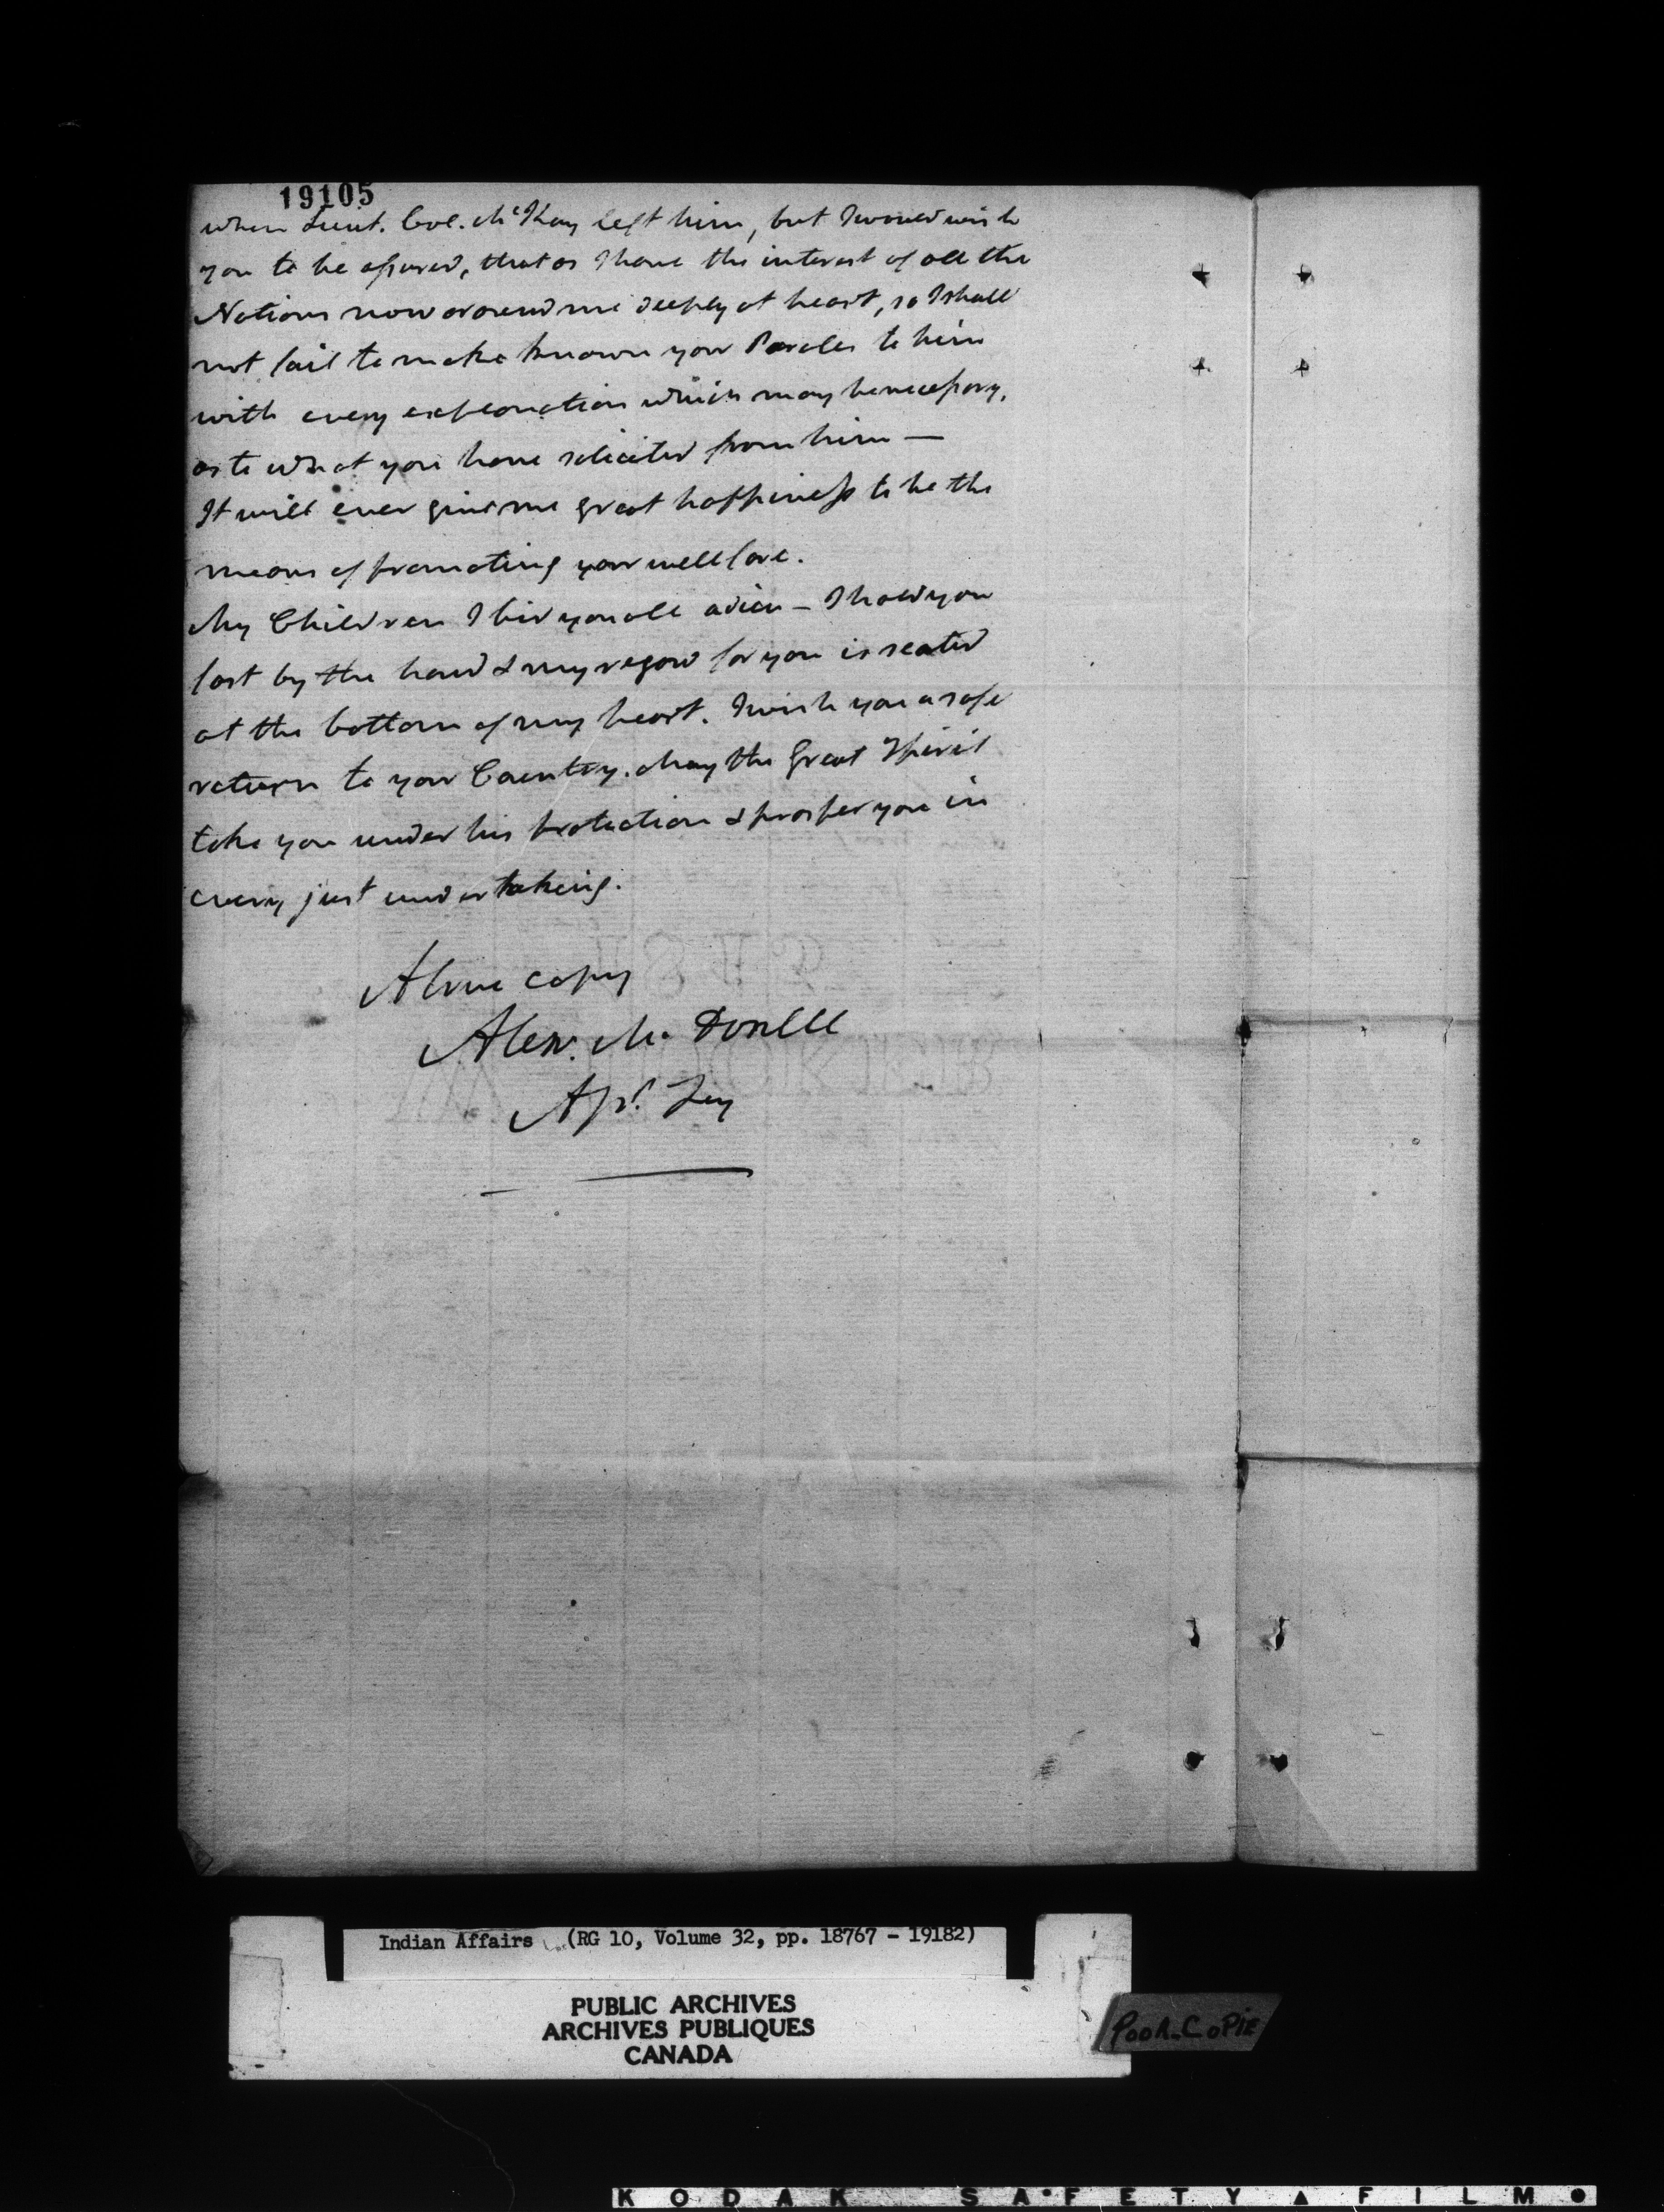 19105
when Lieut. Col. McKay left him, but I would wish
you to be assured, that as I have the interest of all the
Nations now around me deeply at heart, so I shall
not fail to make known your Paroles to him
with every explanation which may be necessary,
as to what you have solicited from him —
It will ever give me great happiness to be the
means of promoting your wellfare.
My Children I bid you all adieu — I hold you
fast by the hand & my regard for you is seated
at the bottom of my heart. I wish you a safe
return to your Country. May the Great Spirit
take you under his protection & prosper you in
every just undertaking.
A true copy
Alexr. Mc Donell
Indian Affairs (RG 10, Volume 32, pp. 18767 - 19182)
PUBLIC ARCHIVES
ARCHIVES PUBLIQUES
CANADA
POOR COPIE
KODAK SAFETY FILM